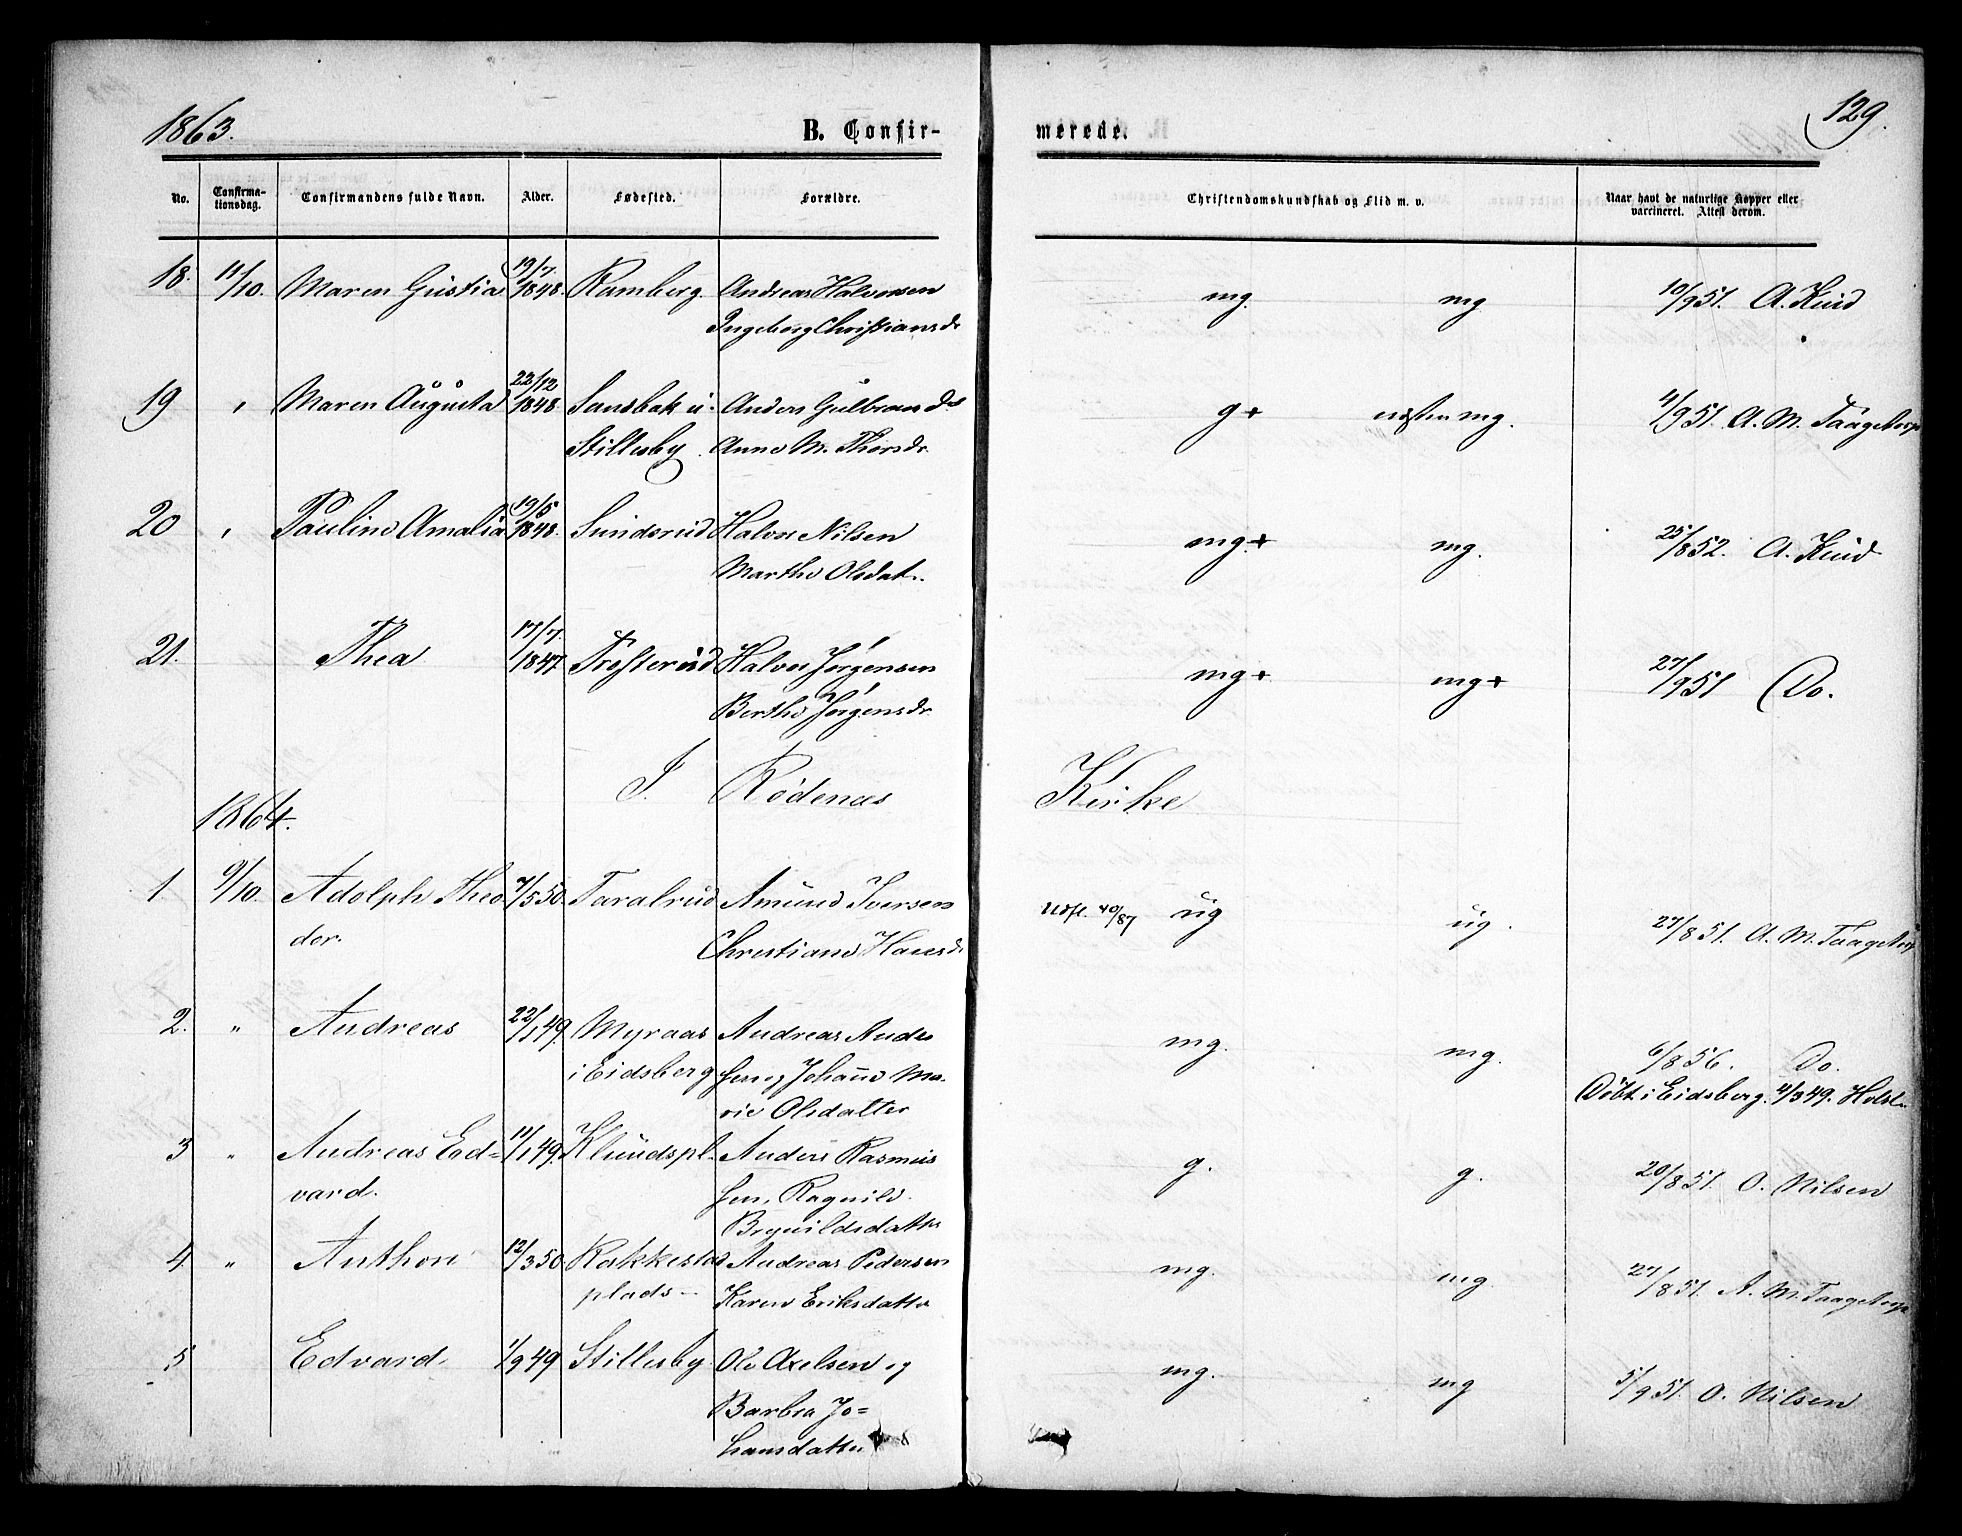 1863.
B. Confir-
merede.
129.
No.
Confirma-
tionsdag.
Confirmandens fulde Navn.
Alder.
Fødested.
Forældre.
Christendomskundskab og Flid m. v.
Naar havt de naturlige Kopper eller
vaccineret. Attest derom.
18. 11/10. Maren Gustia 19/7. 1848. Ramberg. Andreas Halvorsen mg. mg 10/9 51. A. Kuid
Ingeborg Christiansdr
19 " Maren Augusta 22/12 1848 Sandbak u. Anders Gulbrands g+ næsten mg. 4/9 51. A. M. Taagetorp
Stillesby. Anne M. Thorsdr.
20 " Pauline Amalia 19/5 1848. Sundsrud Halvor Nilsen mg.+ mg. 25/8 52. A. Kuid
Marthe Olsdat.
21. Thea 17/7. 1847 Trosterud Halvor Jørgensen mg+ mg+ 27/9 51 Do.
Berthe Jørgensdr.
I. Rødenæs Kirke
1864.
1. 9/10. Adolph Theo 7/5 50. Taralrud Amund Iversen Udfl. 40/87 ug ug. 27/8 51. A. M. Taagetorp
dor. Christiane Hansdr
2. " Andreas 22/1 49. Myraas Andreas Ander mg. mg. 6/8 56. Do.
i Eidsberg sen og Johanne Ma- Døbt i Eidsberg. 4/3 49. Holst
rie Olsdatter
3 " Andreas Ed= 11/1 49. Klundspl. Anders Rasmus g. g. 20/8 51. O. Nilsen
vard. sen, Ragnild
Brynildsdatter
4 " Anthon 12/3 50. Rakkestad Andreas Pedersen mg. mg 27/8 51. A. M. Taagetorp
plads- Karen Eriksdatter
5 Edvard 1/9 49 Stillesby. Ole Axelsen og mg. mg 5/9 51. O. Nilsen
Barbra Jo=
hansdatter